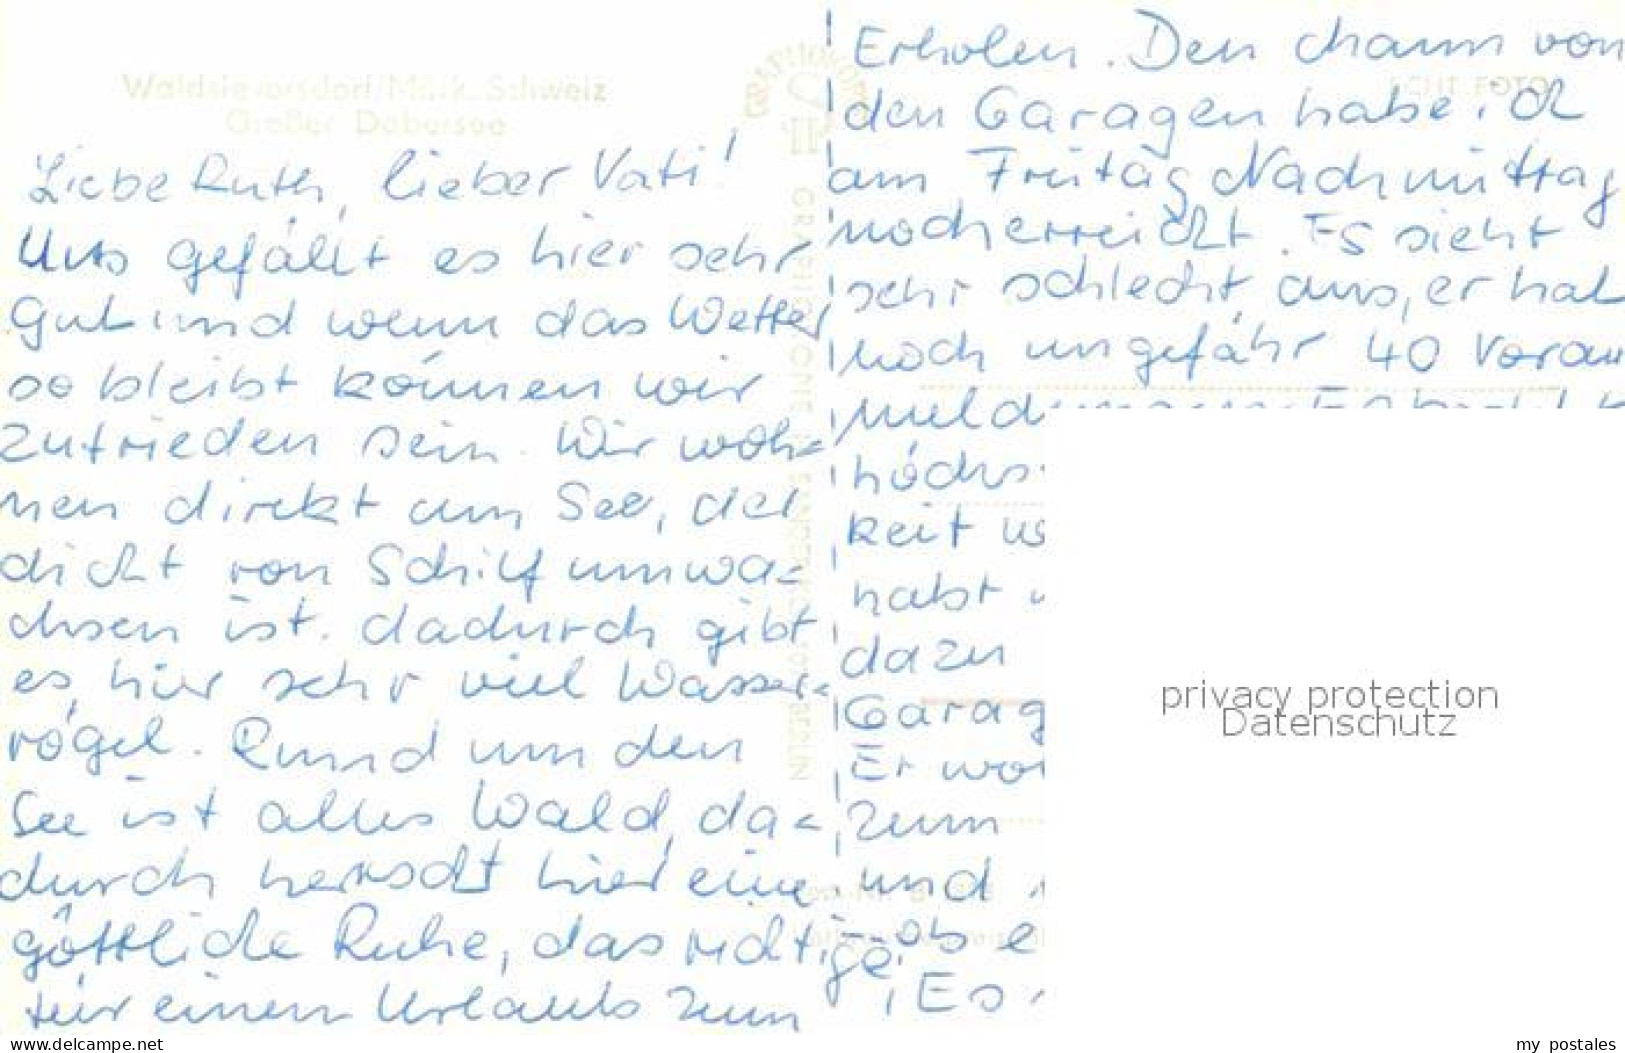 Waldsieversdorf/Märk. Schweiz
Großer Däbersee
Liebe Ruth, lieber Vati!
Uns gefällt es hier sehr
Gut und wenn das Wetter
so bleibt können wir
zufrieden sein. Wir woh=
nen direkt am See, der
dicht von Schilf umwa=
chsen ist. dadurch gibt
es, hier sehr viel Wasser=
vögel. Rund um den
See ist alles Wald, da=
durch herrscht hier eine
göttliche Ruhe, das richtige
für einen Urlaub zum
Erholen. Den chamm von
den Garagen habe ich
am Freitag Nachmittag
noch erreicht. Es sieht
sehr schlecht aus, er hat
noch ungefähr 40 Voran
meld
höchs
keit
habt
dazu
Garag
Er
zum
und
ob e
Es
privacy protection
Datenschutz
www.delcampe.net
my_postales